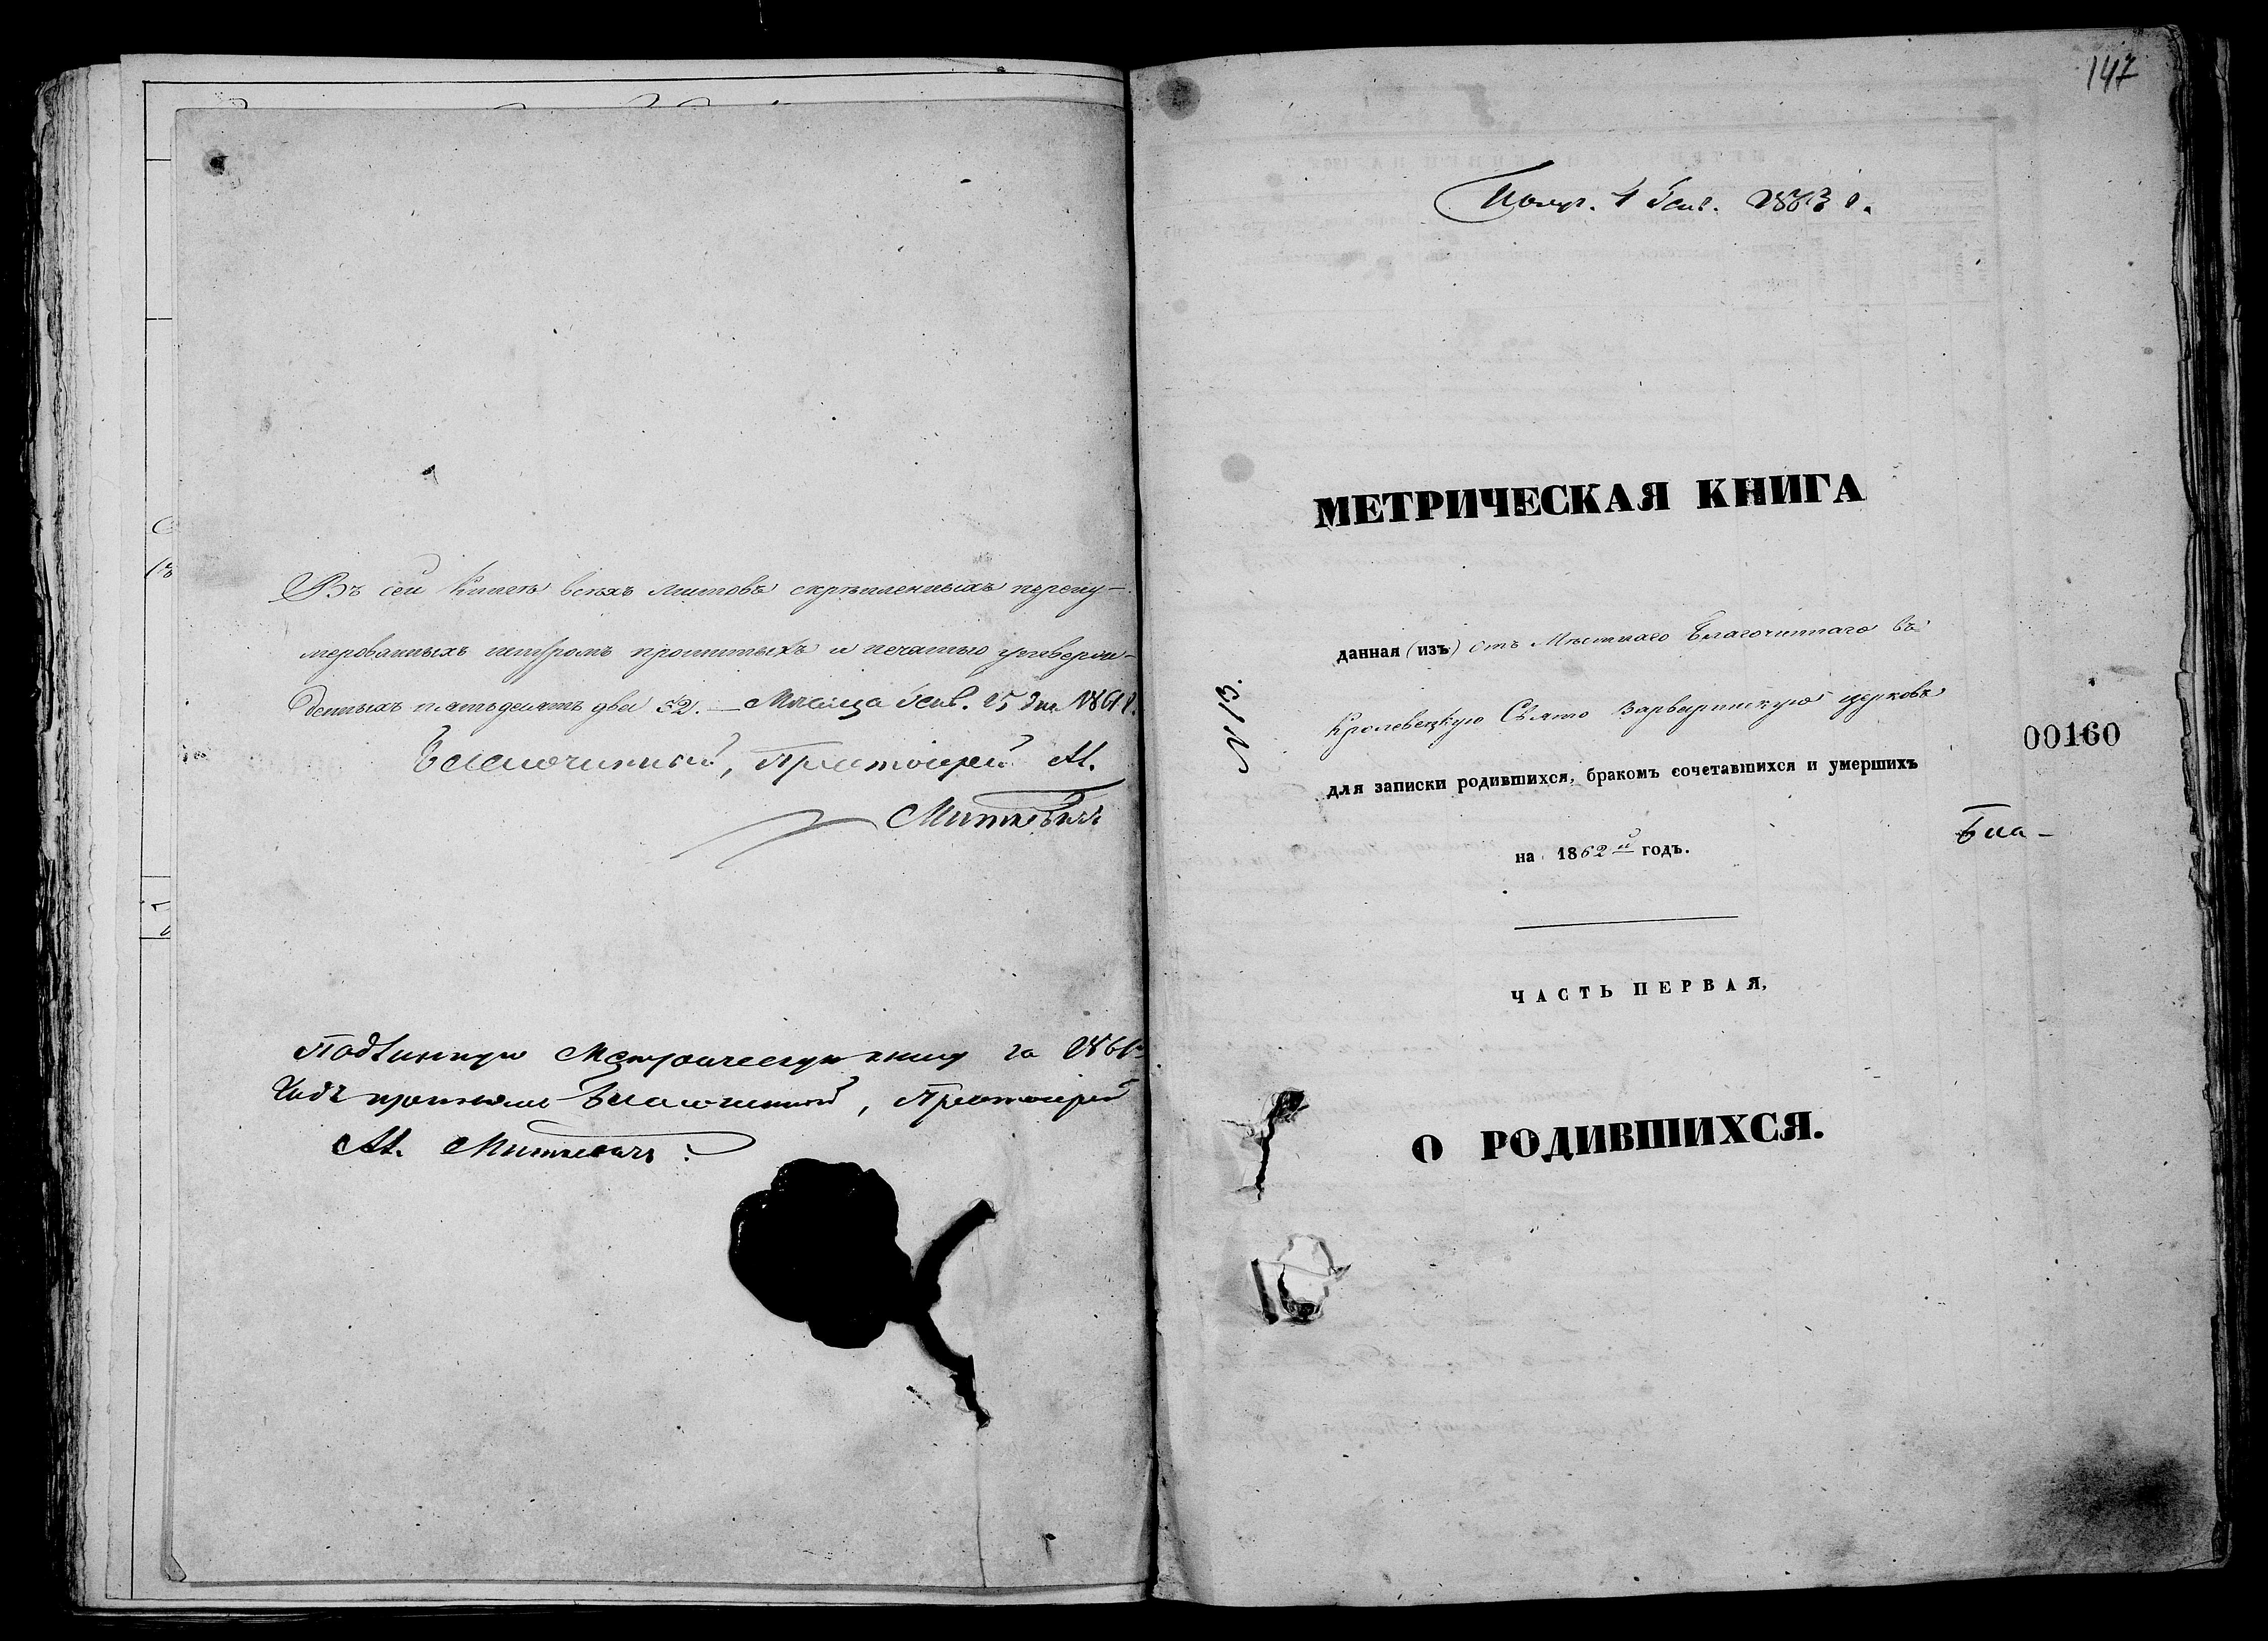 Въ сей книгѣ всѣхъ листовъ скрѣпленныхъ перену-
мерованныхъ шнуромъ прошитыхъ и печатью утверж-
денныхъ пятьдесятъ два 52. — Мѣсяца Генв. 25 дня 1861 г.
Благочинный, Протоіерей Ал.
Миткевичъ
Подлинную Метрическую книгу за 1861й
Годъ принялъ Благочинный, Протоіерей
Ал. Миткевичъ.
147
Получ. 4 Генв. 1863 г.
МЕТРИЧЕСКАЯ КНИГА
данная (изъ) отъ Мѣстнаго Благочиннаго въ
Кролевецкую Свято Варваринскую церковь
для записки родившихся, бракомъ сочетавшихся и умершихъ
на 1862й годъ.
N 13.
00160
Бла-
ЧАСТЬ ПЕРВАЯ,
О РОДИВШИХСЯ.